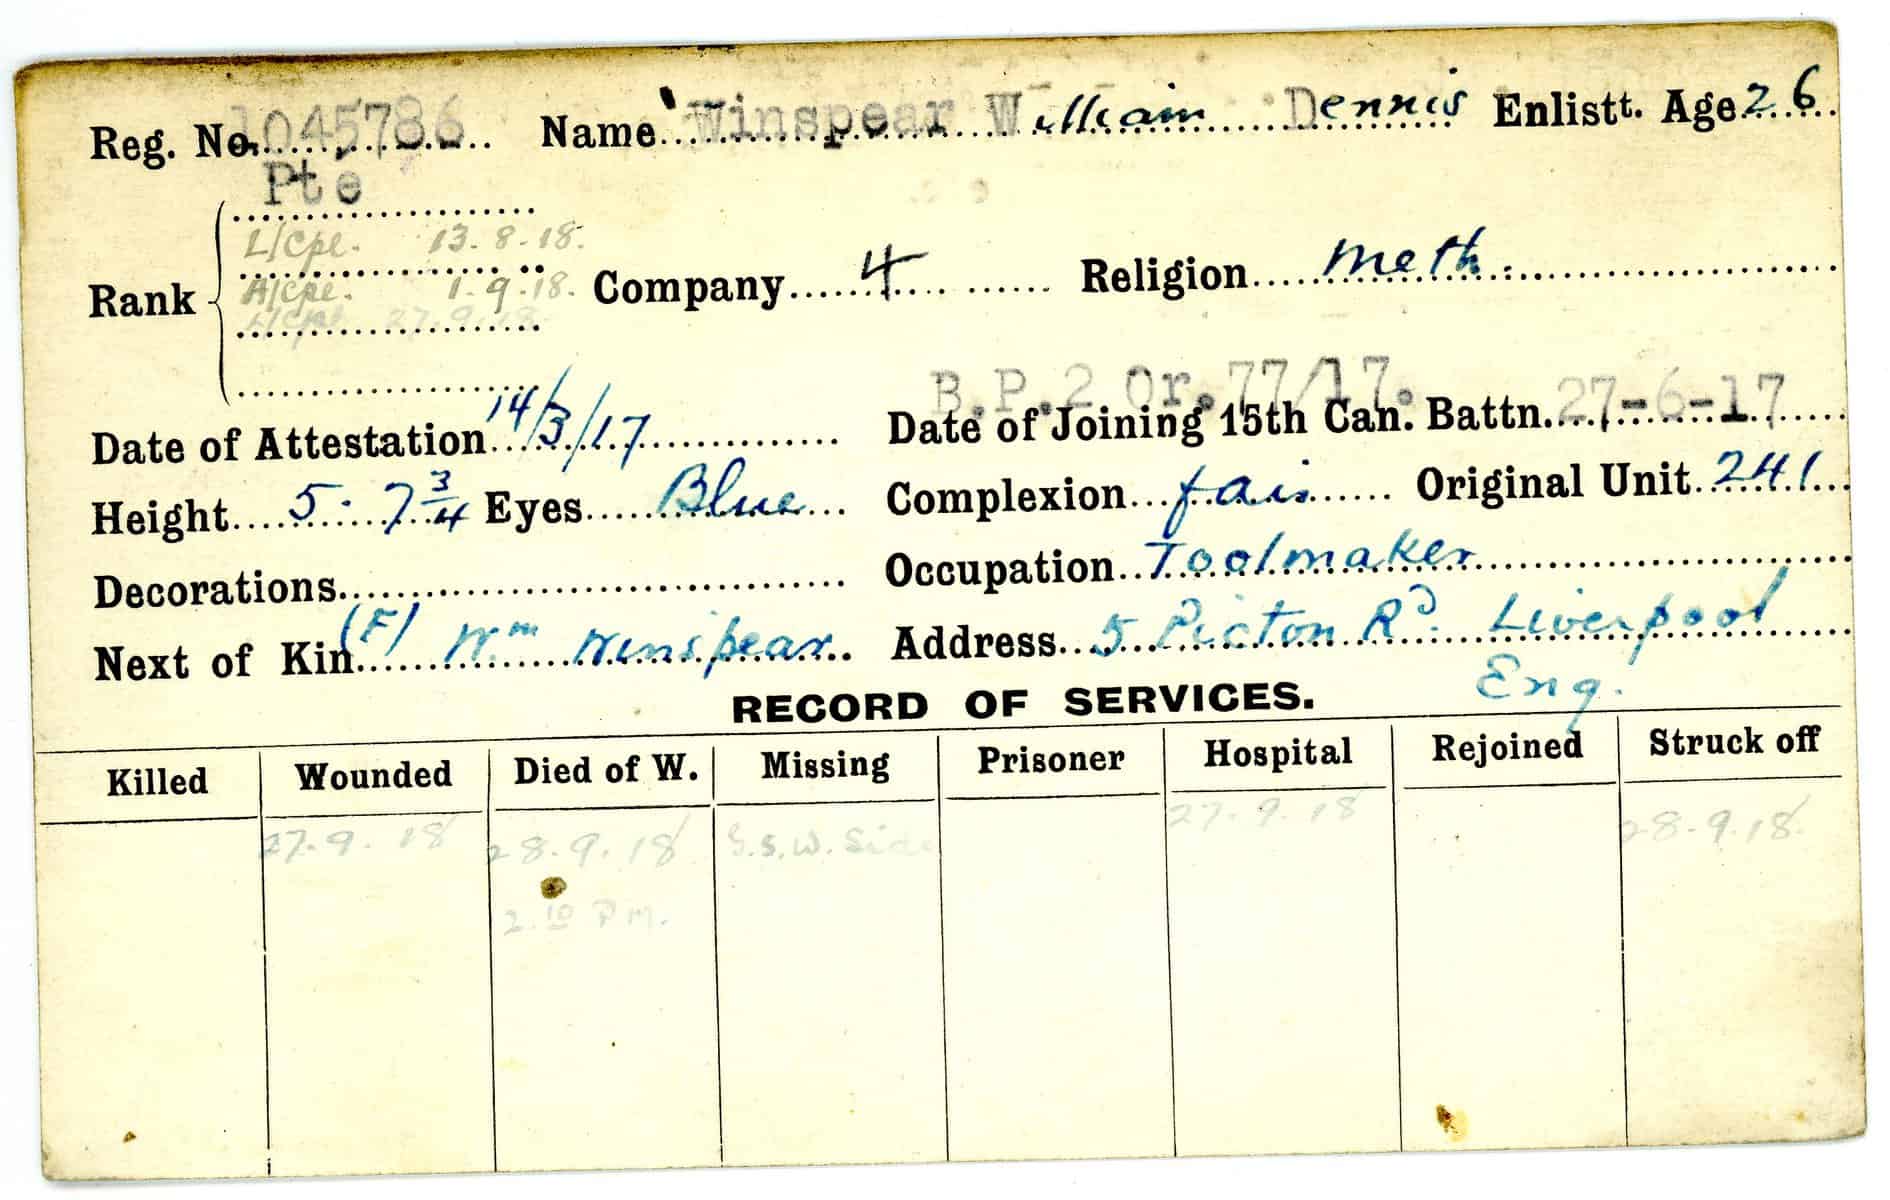 Reg. No. 1045786 Name Winspear William Dennis Enlistt. Age 26
Pte
L/Cpl. 13.8.18.
Rank A/Cpl. 1.9.18. Company 4 Religion Meth.
L/Cpl. 27.9.18.
B.P.2 Or.77/17.
Date of Attestation 14/3/17 Date of Joining 15th Can. Battn. 27-6-17
Height 5.7 3/4 Eyes Blue Complexion fair Original Unit 241
Decorations Occupation Toolmaker
Next of Kin (F) Wm Winspear Address 5 Picton Rd. Liverpool
Eng.
RECORD OF SERVICES.
Killed Wounded Died of W. Missing Prisoner Hospital Rejoined Struck off
27.9.18 28.9.18 G.S.W. Side 27.9.18 28.9.18.
2.10 P.M.